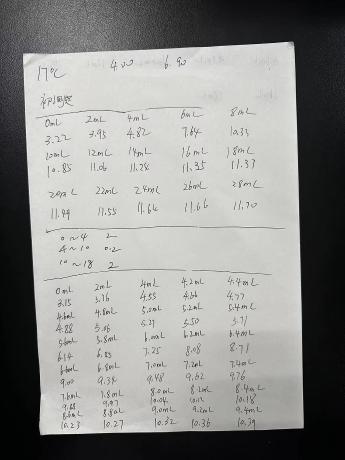 17℃ 4.00 6.90
初测
0mL 2mL 4mL 6mL 8mL
3.22 3.95 4.82 7.64 10.33
10mL 12mL 14mL 16mL 18mL
10.85 11.06 11.24 11.35 11.33
20mL 22mL 24mL 26mL 28mL
11.49 11.55 11.64 11.66 11.70
0~4 2
4~10 0.2
10~18 2
0mL 2mL 4mL 4.2mL 4.4mL
3.15 3.76 4.55 4.66 4.77
4.6mL 4.8mL 5.0mL 5.2mL 5.4mL
4.88 5.06 5.27 5.50 5.71
5.6mL 5.8mL 6.0mL 6.2mL 6.4mL
6.14 6.53 7.25 8.08 8.71
6.6mL 6.8mL 7.0mL 7.2mL 7.4mL
9.00 9.34 9.48 9.62 9.76
7.6mL 7.8mL 8.0mL 8.2mL 8.4mL
9.88 9.97 10.04 10.12 10.18
8.6mL 8.8mL 9.0mL 9.2mL 9.4mL
10.23 10.27 10.32 10.36 10.39